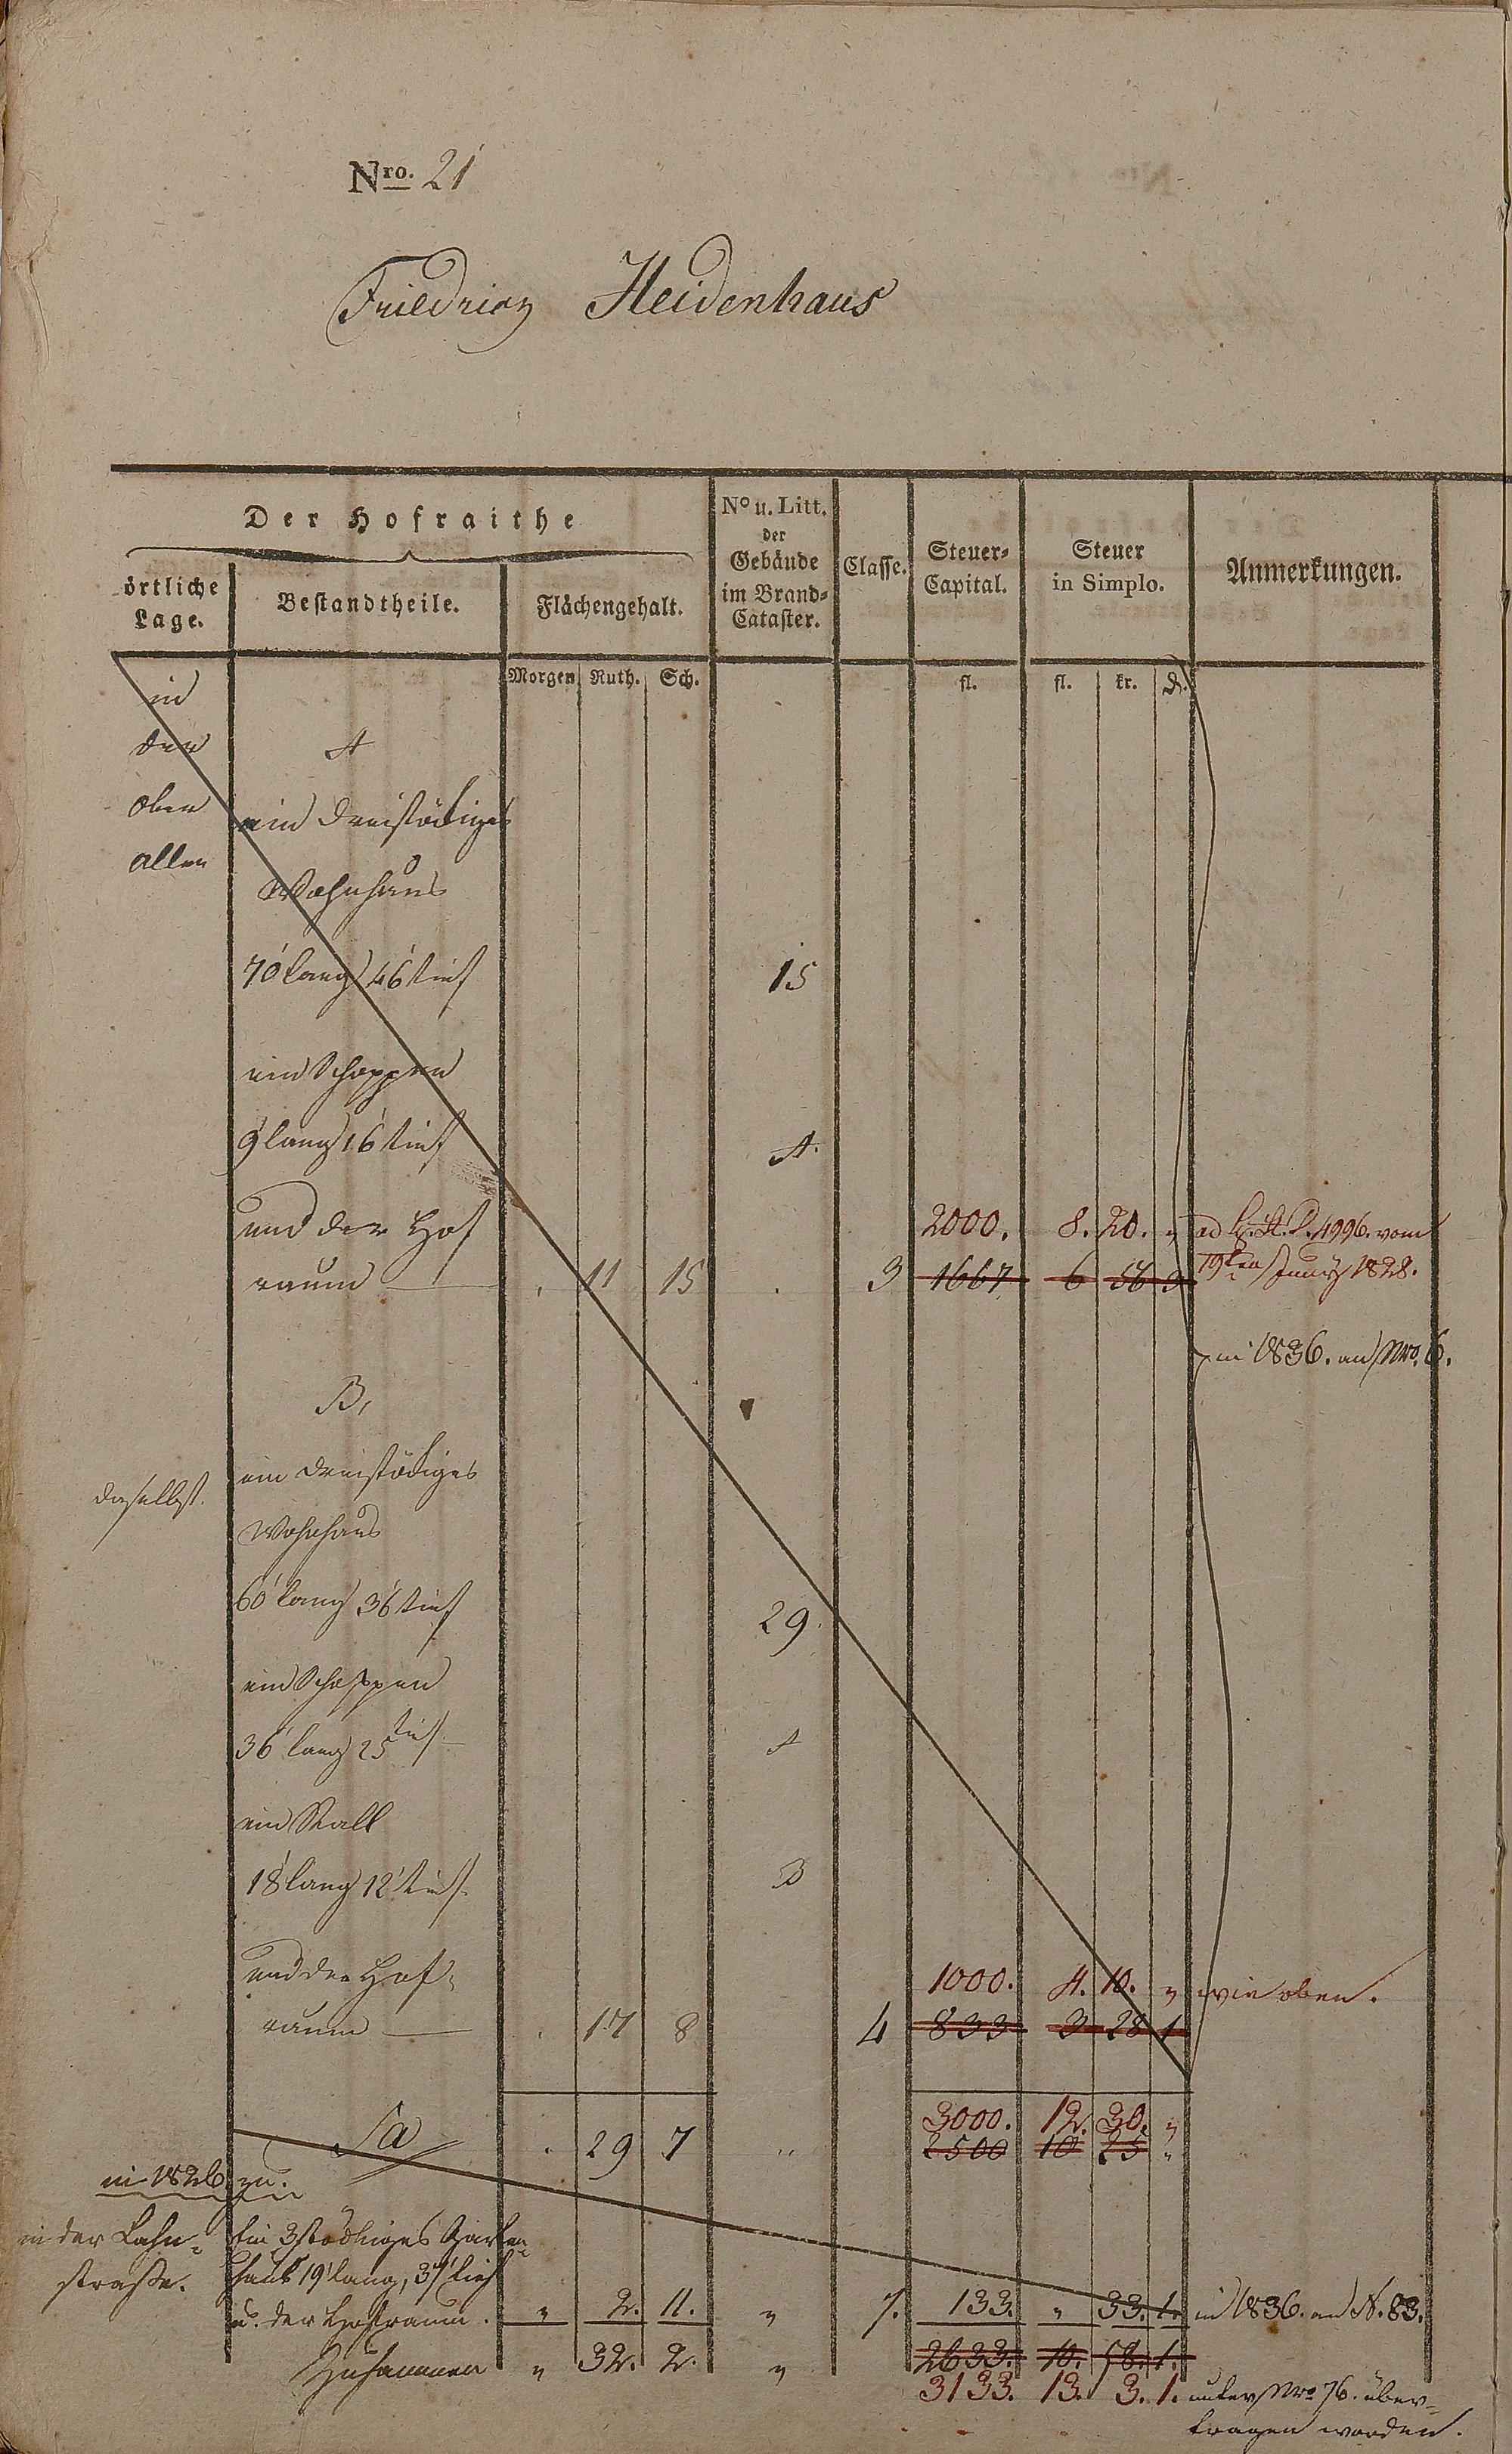 Nro. 21
Friedrich Heidenhaus
Der Hofraithe
örtliche Lage.
Bestandtheile.
Flächengehalt.
No u. Litt. der Gebäude im Brand-Cataster.
Classe.
Steuer-Capital.
Steuer in Simplo.
Anmerkungen.
Morgen Ruth. Sch. fl. fl. kr. d.
in
der A
oben ein dreistöckiges
allee
Wohnhaus
70' lang 46' tief 15
ein Schoppen
9' lang 16' tief A.
und der Hof 2000. 8. 20. „ ad 4996. vom
raum — . 11 15 . 3 1667 6 56 3 19ten Juny 1828.
in 1836. an Nro. 6.
B,
ein dreistöckiges
daselbst.
Wohnhaus
60' lang 36' tief 29.
ein Schoppen
36' lang 25 tief A
ein Stall
18' lang 12' tief B
und der Hof- 1000. 4. 10. „ wie oben.
raum — . 17 8 4 833 3 28 1
3000. 12. 30. „
Sa . 29 7 „ 2500 10 25 „
in 1826 zu.
in der Lahn- Ein 3stöckiges
straße. haus 19' lang, 37' tief
u. der Hofraum. „ 2. 11. „ 7. 133. „ 33. 1. in 1836. an N. 83.
Zusammen „ 32. 2. „ 2633. 10. 58. 1.
3133. 13. 3. 1. unter Nro 76. über-
tragen worden.